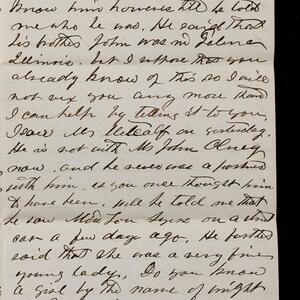 Know him however till he told
me who he was. He said that
his brother John was in
Illinois. but I suppose that you
already know of this so I will
not vex you any more than
I can help by telling it to you.
I saw Mr Metcalf on yesterday.
He is not with Mr John Olney
now. and he never was a partner
with him. as you once thought him
to have been. will he told me that
he saw on a
car a few days ago. He further
said that she was a very fine
young lady. Do you know
a girl by the name of